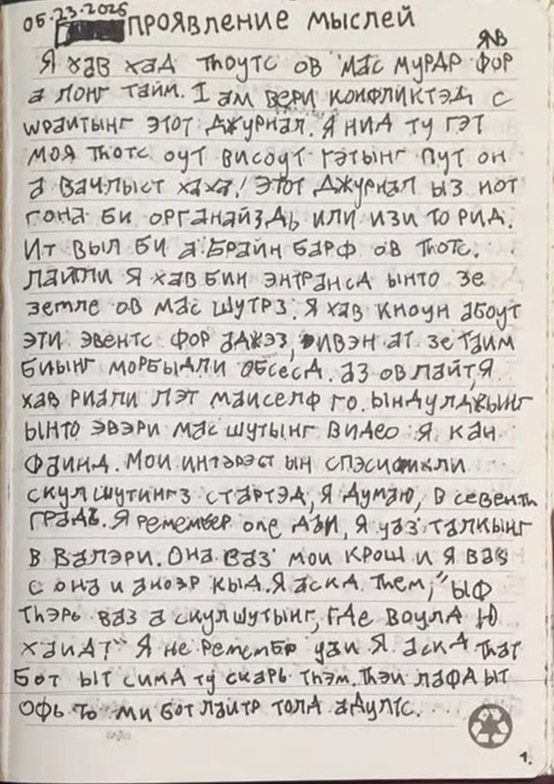 05.23.2026
ПРОЯВЛЕНИЕ МЫСЛЕЙ
ЯВ
Я ХАВ ХАД THОУТС ОВ МАС МУРДР ФОР
а ЛОНГ ТАЙМ. I ам ВЕРИ КОНФЛИКТЭД С
WРАИТЫНГ ЭТОТ ДЖУРНАЛ. Я НИД ТУ ГЭТ
МОЯ THOTC ОУТ ВИСОУТ ГЭТЫНГ ПУТ ОН
а ВАЧЛЫСТ ХАХА! ЭТОТ ДЖУРНАЛ ЫЗ НОТ
ГОНА БИ ОРГАНАЙЗДЬ ИЛИ ИЗИ ТО РИД.
ИТ ВЫЛ БИ а БРАЙН БАРФ ОВ THOTC.
ЛАЙТЛИ Я ХАВ БИН ЭНТРАНСД ЫНТО ЗЕ
ЗЕМЛЕ ОВ МАС ШУТРЗ. Я ХАВ КНОУН АБОУТ
ЭТИ ЭВЕНТС ФОР АДЖЭЗ, ИВЭН АТ ЗЕ ТАИМ
БИЫНГ МОРБЫДЛИ ОБСЕСД. АЗ ОВ ЛАЙТ, Я
ХАВ РИАЛИ ЛЭТ МАИСЕЛФ ГО. ЫНДУЛДЖЫНГ
ЫНТО ЭВЭРИ МАС ШУТЫНГ ВИДЕО Я КАН
ФАИНД. МОИ ИНТЭРЭСТ ЫН СПЭСИФИКЛИ
СКУЛ ШУТИНГЗ СТАРТЭД, Я ДУМАЮ, В СЕВЕНTH
ГРАДЬ. Я РЕМЕМБЕР ОНЕ ДАИ, Я УАЗ ТАЛКЫНГ
В ВАЛЭРИ. ОНА ВАЗ МОИ КРОШ И Я ВАЗ
С ОНА И АНОЭР КЫД. Я АСКД THEM, "ЫФ
THЭРЬ ВАЗ а СКУЛ ШУТЫНГ, ГДЕ ВОУЛД Ю
ХАИД?" Я НЕ РЕМЕМБР УАИ Я АСКД THAT
БОТ ЫТ СИМД ТУ СКАРЬ THЭМ. THЭИ ЛАФД ЫТ
ОФЬ ТО МИ БОТ ЛАЙТР ТОЛД АДУЛТС.
1.